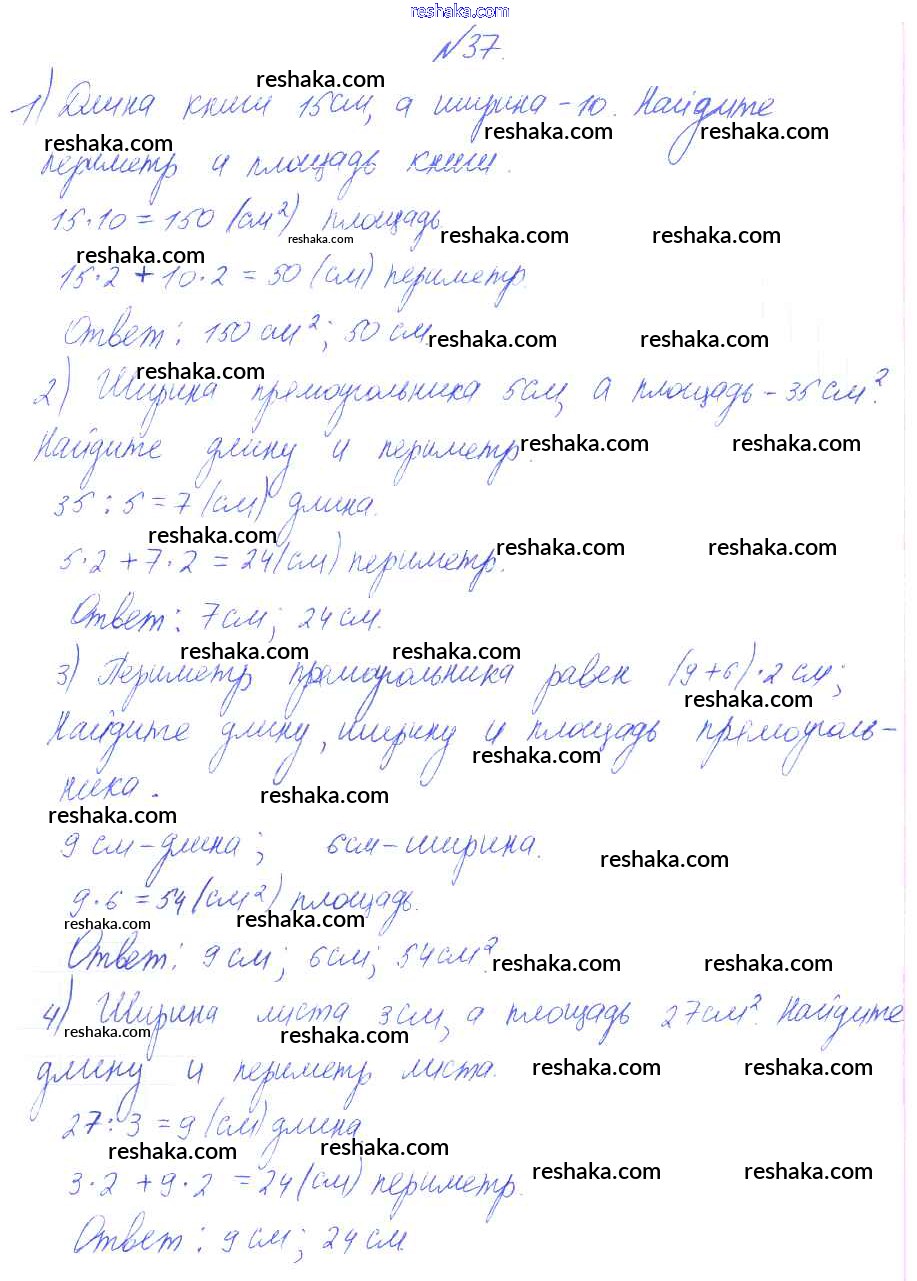 reshaka.com
№37.
reshaka.com
1) Длина книги 15см, а ширина - 10. Найдите
reshaka.com reshaka.com reshaka.com
периметр и площадь книги.
15·10 = 150 (см²) площадь
reshaka.com reshaka.com reshaka.com
reshaka.com
15·2 + 10·2 = 50 (см) периметр.
Ответ: 150 см²; 50 см.
reshaka.com reshaka.com
reshaka.com
2) Ширина прямоугольника 5см, а площадь - 35 см².
Найдите длину и периметр.
reshaka.com reshaka.com
35 : 5 = 7 (см) длина.
reshaka.com reshaka.com reshaka.com
5·2 + 7·2 = 24 (см) периметр.
Ответ: 7 см; 24 см.
reshaka.com reshaka.com
3) Периметр прямоугольника равен (9+6)·2 см;
reshaka.com
Найдите длину, ширину и площадь прямоуголь-
reshaka.com
ника.
reshaka.com
reshaka.com
9 см - длина; 6см - ширина.
reshaka.com
9·6 = 54 (см²) площадь.
reshaka.com reshaka.com
Ответ: 9 см; 6см; 54 см².
reshaka.com reshaka.com
4) Ширина листа 3см, а площадь 27 см². Найдите
reshaka.com reshaka.com
длину и периметр листа.
reshaka.com reshaka.com
27 : 3 = 9 (см) длина
reshaka.com reshaka.com
3·2 + 9·2 = 24 (см) периметр.
reshaka.com reshaka.com
Ответ: 9 см; 24 см